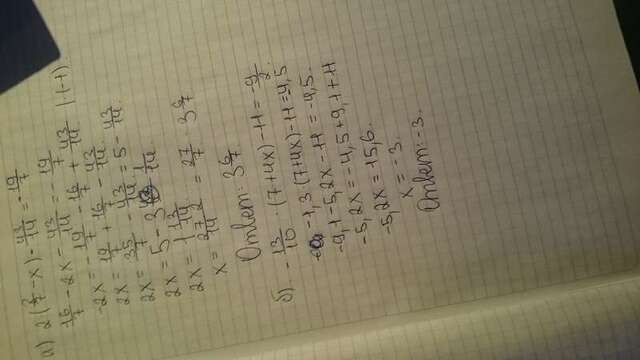 а) 2(8/7 - x) - 43/14 = -19/7
16/7 - 2x - 43/14 = -19/7
-2x = -19/7 - 16/7 + 43/14 | (-1)
2x = 19/7 + 16/7 - 43/14
2x = 35/7 - 43/14 = 5 - 43/14
2x = 5 - 3 1/14
2x = 1 13/14
x = 27/14 = 27/7 3 6/7
Ответ: 3 6/7
б) -13/10 · (7+4x) - 11 = -9/2
-1,3(7+4x) - 11 = -4,5
-9,1 - 5,2x - 11 = -4,5
-5,2x = -4,5 + 9,1 + 11
-5,2x = 15,6
x = -3
Ответ: -3.